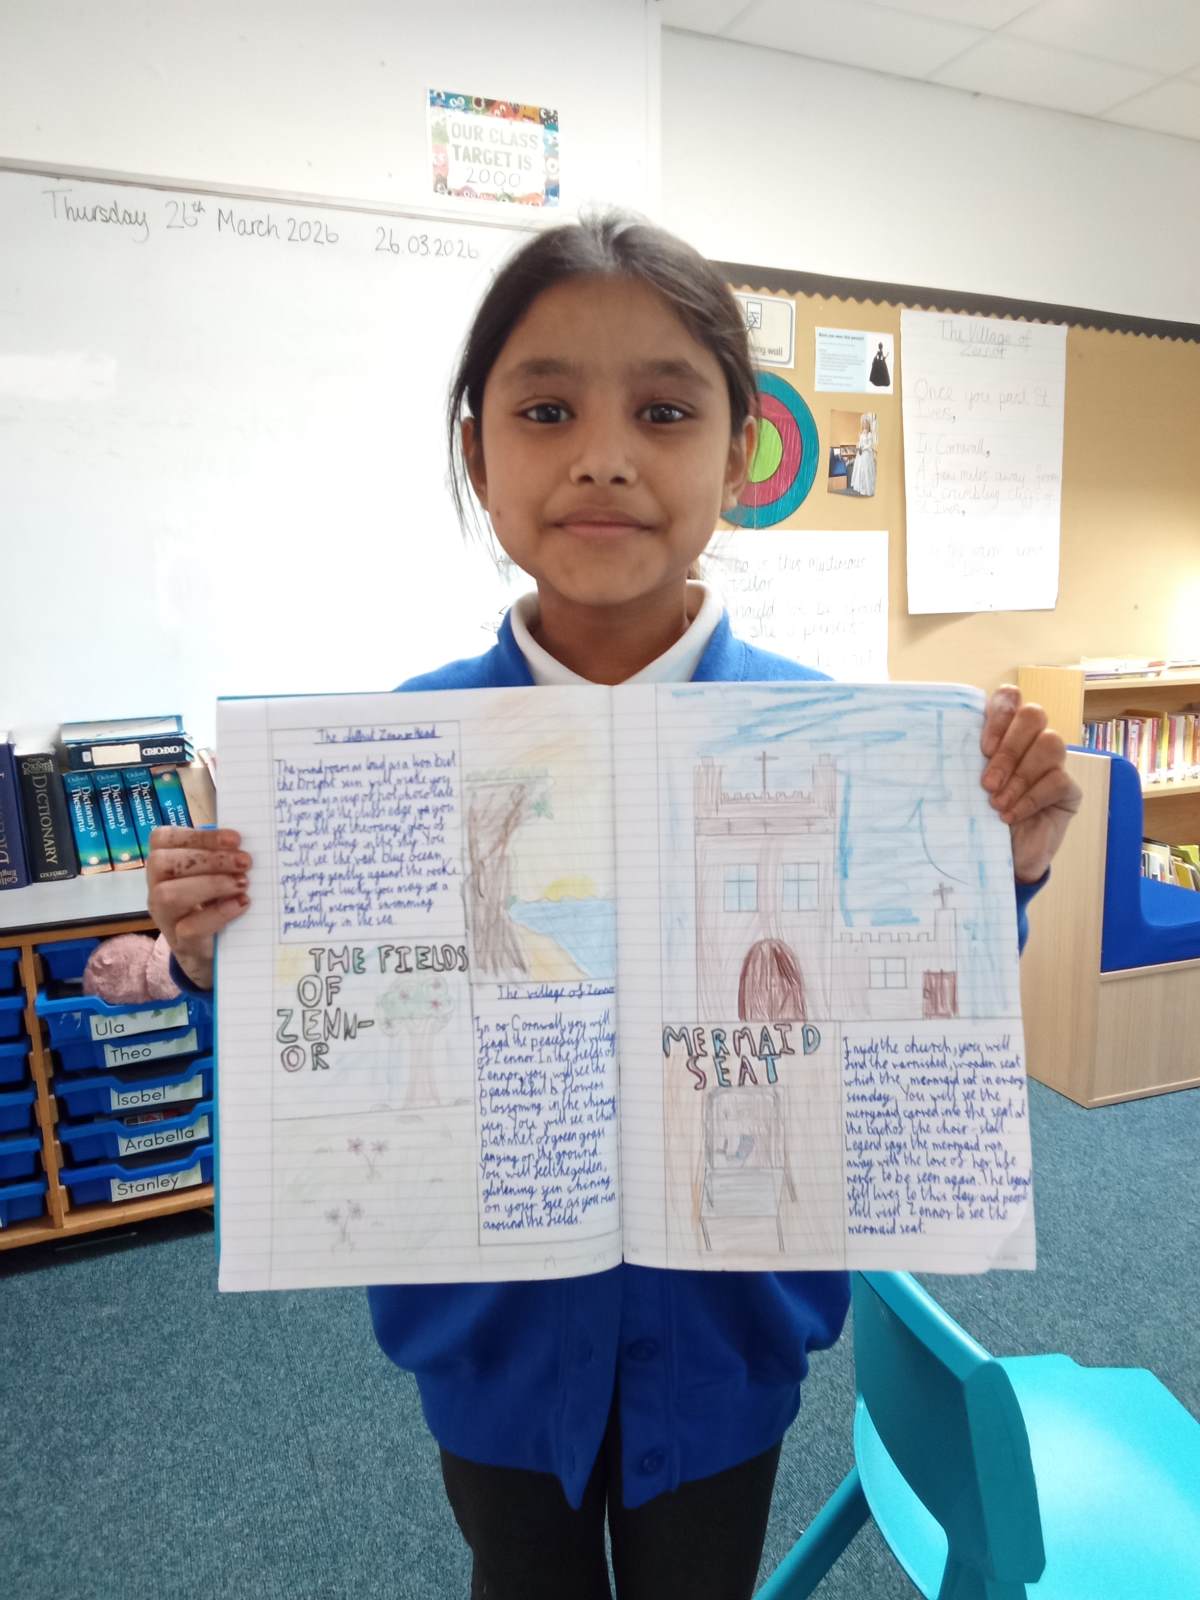 OUR CLASS
TARGET IS
2000
Thursday 26th March 2026 26.03.2026
The Village of
Zennor
Once you past St
Ives,
In Cornwall,
A few miles away from
the crumbling city of
St Ives,
is this mysterious
she is present
ing wall
OXFORD
DICTIONARY
Oxford
Dictionary &
Thesaurus
Oxford
Dictionary &
Thesaurus
Ula
Theo
Isobel
Arabella
Stanley
The Zennor Head
The wind roars as loud as a lion but
the bright sun will make you
as warm as a cup of hot chocolate
If you go to the cliffs edge, you
may see the orange glow of
the sun setting in the sky. You
will see the vast blue ocean,
crashing gently against the rocks.
If you're lucky you may see a
kind mermaid swimming
peacefully in the sea.
THE FIELDS
OF
ZENN-
OR
The village of Zennor
In Cornwall, you will
find the peaceful village
of Zennor. In the fields of
Zennor, you will see the
beautiful flowers
blossoming in the shining
sun. You will see a
blanket of green grass
laying on the ground.
You will feel the golden,
glistening sun shining
on your face as you run
around the fields.
MERMAID
SEAT
Inside the church, you will
find the varnished, wooden seat
which the mermaid sat in every
sunday. You will see the
mermaid carved into the seat at
the back of the choir-stall.
Legend says the mermaid ran
away with the love of her life
never to be seen again. The legend
still lives to this day and people
still visit Zennor to see the
mermaid seat.